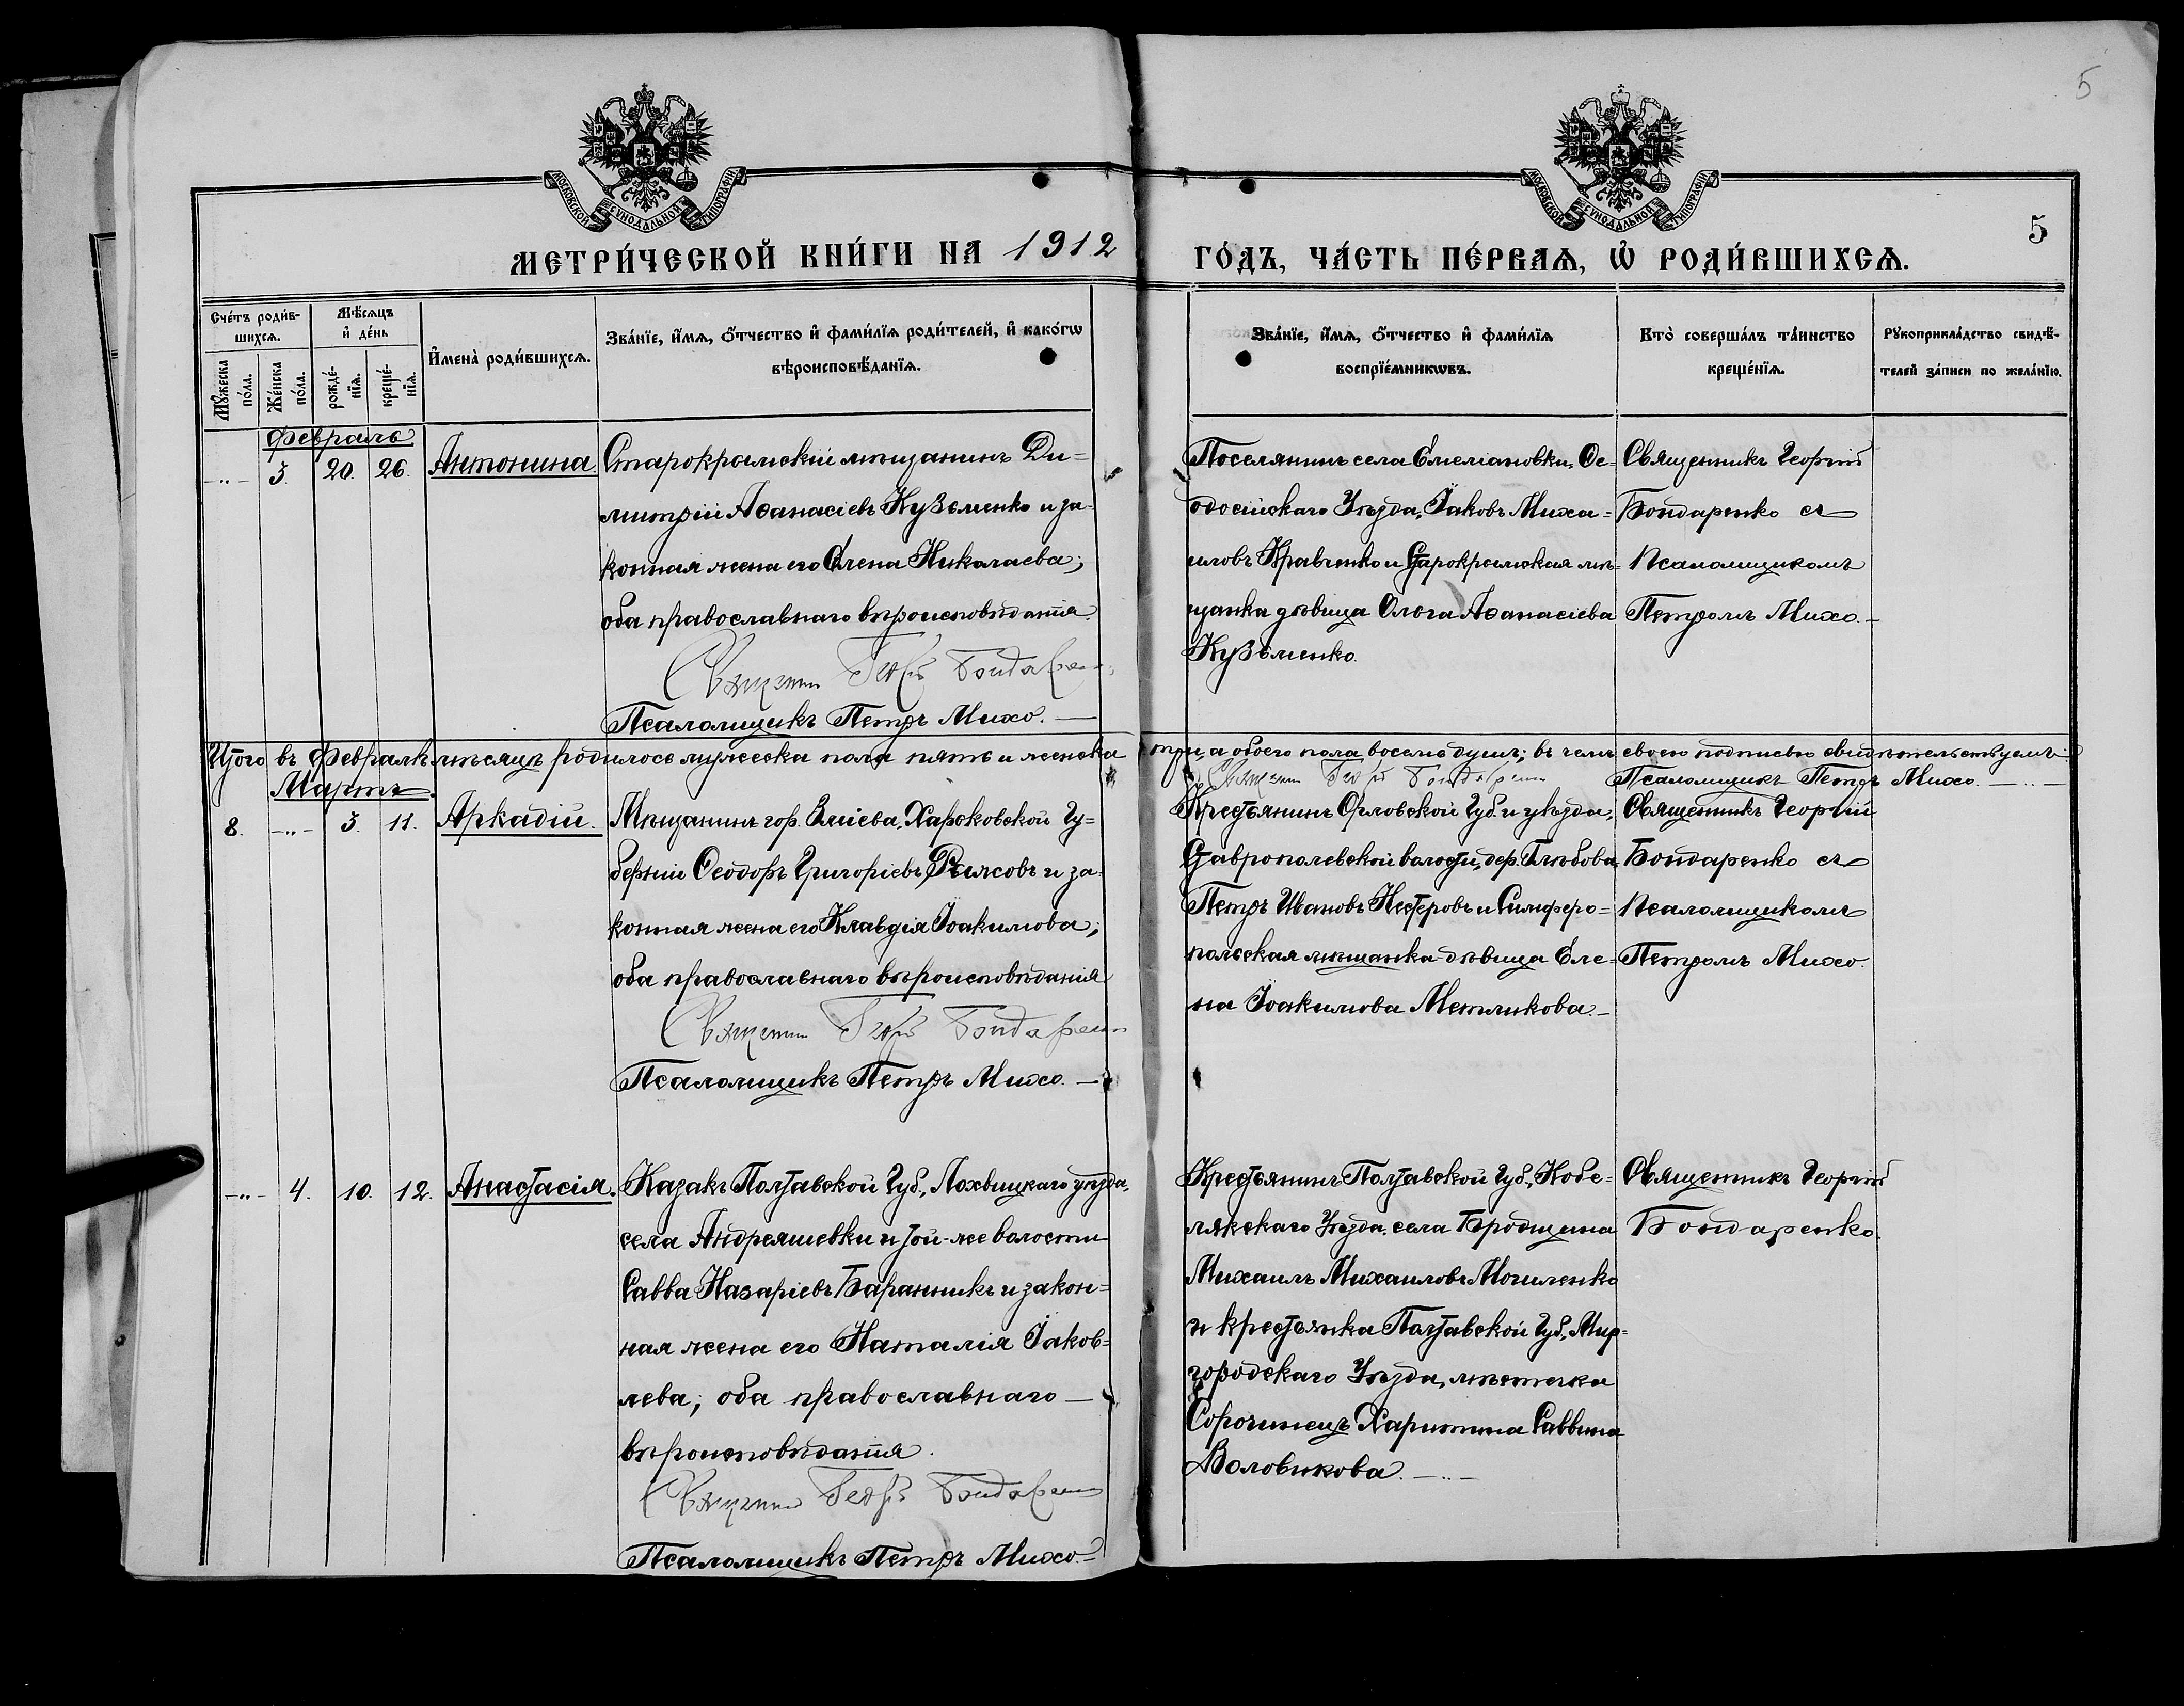 5
МОСКОВСКОЙ СѴНОДАЛЬНОЙ ТИПОГРАФІИ
МОСКОВСКОЙ СѴНОДАЛЬНОЙ ТИПОГРАФІИ
5
МЕТРИ́ЧЕСКОЙ КНИ́ГИ НА 1912 ГО́ДЪ, ЧА́СТЬ ПЕ́РВАЯ, Ѡ РОДИ́ВШИХСЯ.
Сче́тъ роди́в-
шихся.
Мꙋ́жеска по́ла.
Же́нска по́ла.
Мѣ́сяцъ
и де́нь
рожде́-
нїя.
креще́-
нїя.
Имена̀ роди́вшихся.
Зва́нїе, и́мя, о́тчество и фами́лїя роди́телей, и како́гѡ
вѣроисповѣ́данїя.
Зва́нїе, и́мя, о́тчество и фами́лїя
воспрїе́мникѡвъ.
Кто̀ соверша́лъ та́инство
креще́нїя.
Рꙋкоприкла́дство свидѣ́-
телей за́писи по жела́нїю.
Февраль
-"- 3. 20. 26. Антонина.
Старокрымскій мѣщанинъ Ди=
митрій Аѳанасіевъ Кузьменко и за-
конная жена его Елена Николаева;
оба православнаго вѣроисповѣданія.
Священникъ Георгій Бондаренко
Псаломщикъ Петръ Михо. —
Поселянинъ села Емеліановки, Ѳе=
одосійскаго Уѣзда, Іаковъ Миха=
иловъ Кравченко и Старокрымская мѣ-
щанка дѣвица Ольга Аѳанасіева
Кузьменко.
Священникъ Георгій
Бондаренко съ
Псаломщикомъ
Петромъ Михо. —
Итого въ Февралѣ мѣсяцѣ родилось мужеска пола пять и женска три, а обоего пола восемь душъ; въ чемъ своею подписью свидѣтельствуемъ:
Священникъ Георгій Бондаренко Псаломщикъ Петръ Михо. —"—
Мартъ.
8. -"- 3. 11. Аркадій.
Мѣщанинъ гор. Зміева, Харьковской Гу=
берніи Ѳеодоръ Григоріевъ Рыжовъ и за-
конная жена его Клавдія Іоакимова;
оба православнаго вѣроисповѣданія
Священникъ Георгій Бондаренко
Псаломщикъ Петръ Михо. —
Крестьянинъ Орловской Губ. и уѣзда,
Ставропольской волости, дер.
Петръ Ивановъ Нестеровъ и Симферо=
польская мѣщанка-дѣвица Еле=
на Іоакимова Метликова —
Священникъ Георгій
Бондаренко съ
Псаломщикомъ
Петромъ Михо.
-"- 4. 10. 12. Анастасія.
Казакъ Полтавской Губ., Лохвицкаго уѣзда,
села Андреяшевки и той-же волости
Савва Назаріевъ Баранникъ и закон=
ная жена его Наталія Іаков=
лева; оба православнаго —
вѣроисповѣданія.
Священникъ Георгій Бондаренко
Псаломщикъ Петръ Михо. —
Крестьянинъ Полтавской Губ., Кобе=
лякскаго Уѣзда, села Бродщина
Михаилъ Михаиловъ Могиленко
и крестьянка Полтавской Губ., Мир=
городскаго Уѣзда, мѣстечка
Сорочинецъ Харитина Саввина
Воловикова. —"—
Священникъ Георгій
Бондаренко.